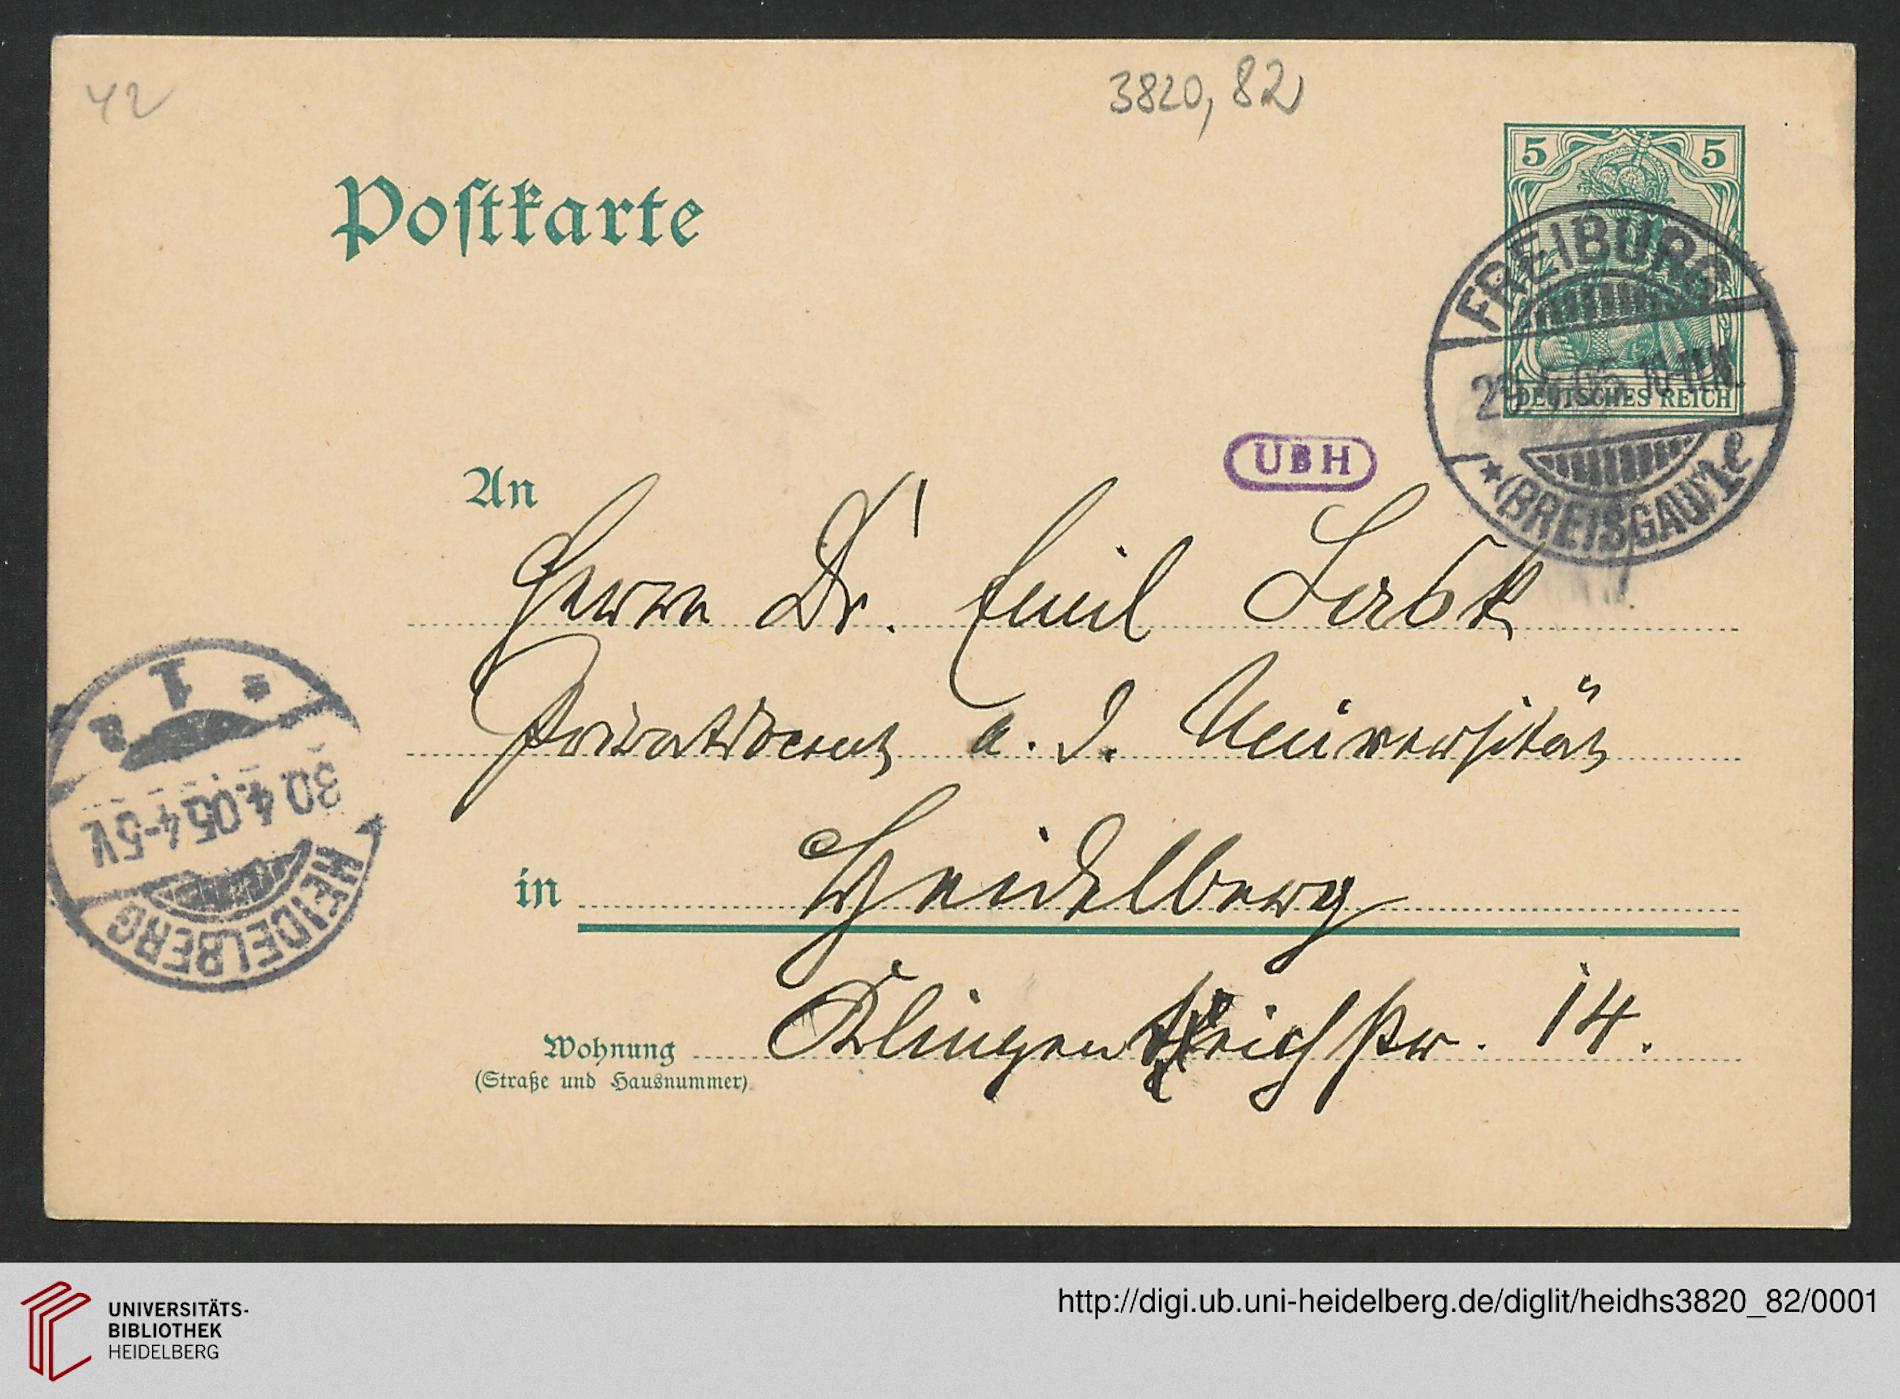 42
3820, 82
Postkarte
5 5
DEUTSCHES REICH
FREIBURG
29.4.05. 10-11N.
*(BREISGAU)*1e
UBH
An
Herrn Dr. Emil Lask
Privatdocent a. d. Universität
in Heidelberg
Wohnung Klingenteichstr. 14.
(Straße und Hausnummer)
* 1 8
30.4.05.4-5V.
HEIDELBERG
UNIVERSITÄTS-
BIBLIOTHEK
HEIDELBERG
http://digi.ub.uni-heidelberg.de/diglit/heidhs3820_82/0001